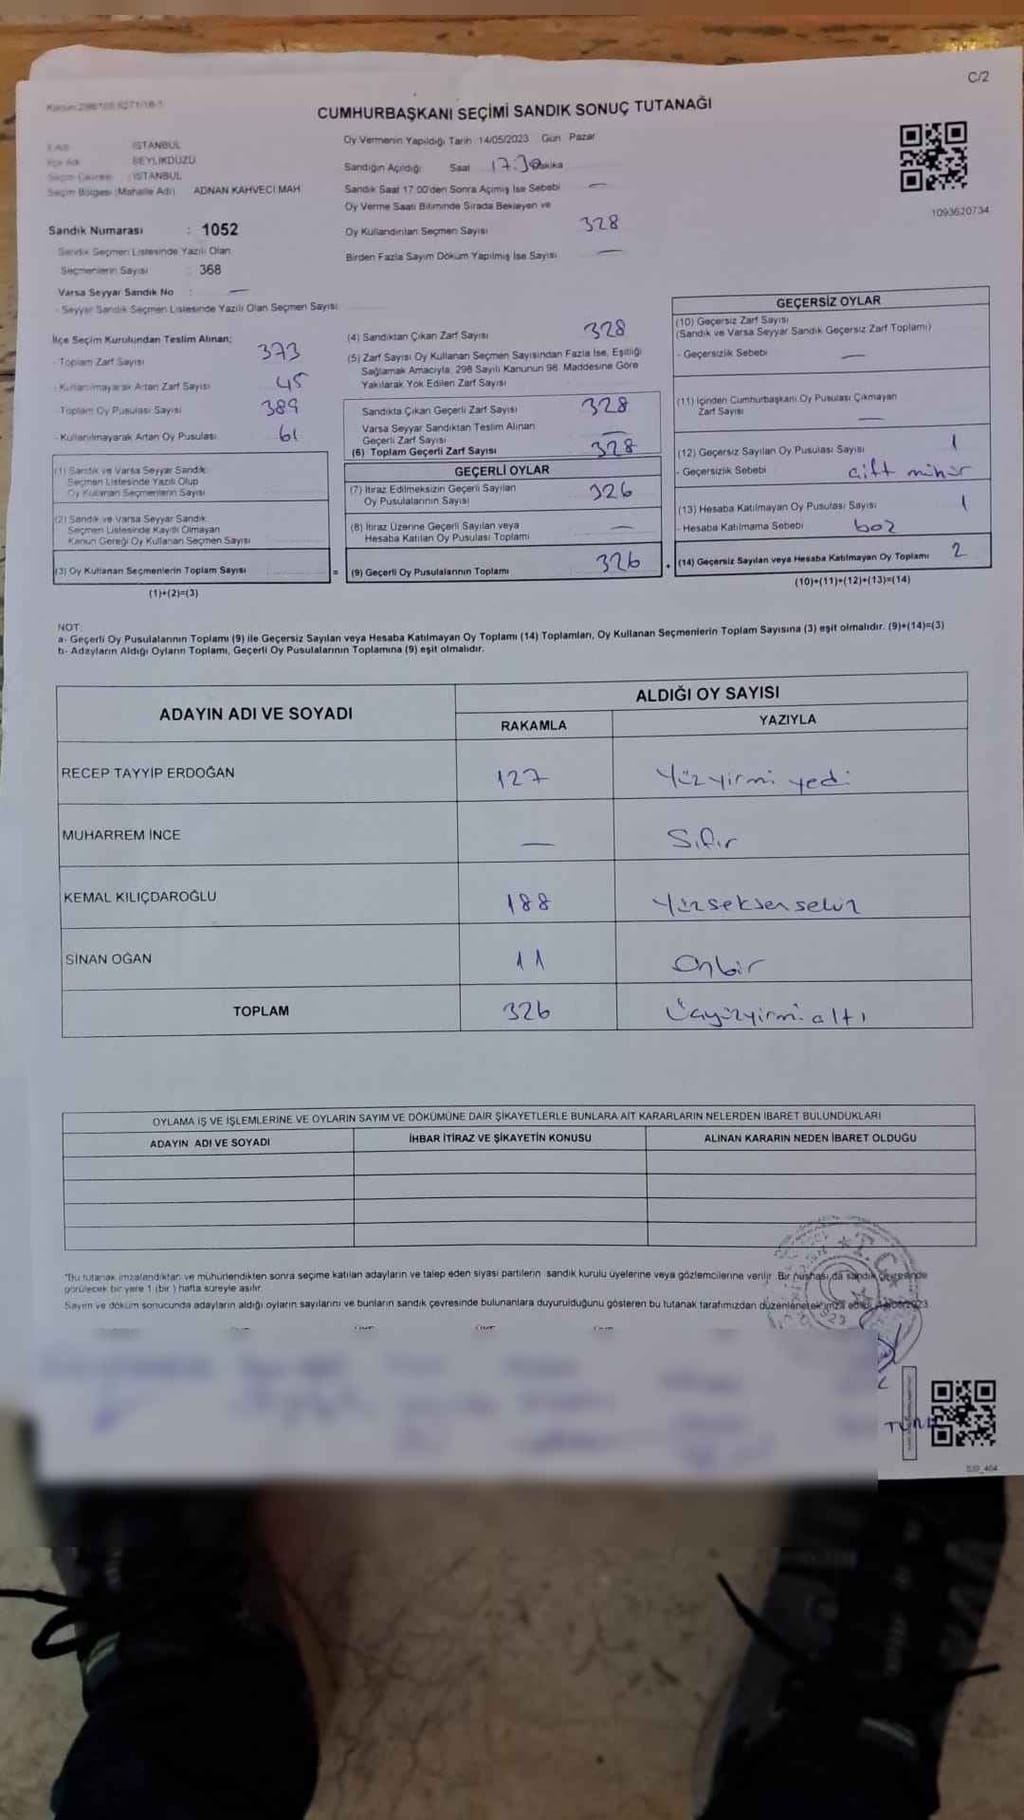 C/2
CUMHURBAŞKANI SEÇİMİ SANDIK SONUÇ TUTANAĞI
İSTANBUL
BEYLİKDÜZÜ
İSTANBUL
Seçim Bölgesi (Mahalle Adı) ADNAN KAHVECİ MAH
Sandık Numarası : 1052
Sandık Seçmen Listesinde Yazılı Olan
Seçmenlerin Sayısı : 368
Varsa Seyyar Sandık No : —
- Seyyar Sandık Seçmen Listesinde Yazılı Olan Seçmen Sayısı
Oy Vermenin Yapıldığı Tarih 14/05/2023 Gün Pazar
Sandığın Açıldığı Saat 17:30 Dakika
Sandık Saat 17.00'den Sonra Açımış İse Sebebi —
Oy Verme Saati Bitiminde Sırada Bekleyen ve
Oy Kullandırılan Seçmen Sayısı 328
Birden Fazla Sayım Döküm Yapılmış İse Sayısı —
1093620734
İlçe Seçim Kurulundan Teslim Alınan;
- Toplam Zarf Sayısı 373
- Kullanılmayarak Artan Zarf Sayısı 45
- Toplam Oy Pusulası Sayısı 389
- Kullanılmayarak Artan Oy Pusulası 61
(1) Sandık ve Varsa Seyyar Sandık
Seçmen Listesinde Yazılı Olup
Oy Kullanan Seçmenlerin Sayısı
(2) Sandık ve Varsa Seyyar Sandık
Seçmen Listesinde Kayıtlı Olmayan
Kanun Gereği Oy Kullanan Seçmen Sayısı
(3) Oy Kullanan Seçmenlerin Toplam Sayısı
(1)+(2)=(3)
(4) Sandıktan Çıkan Zarf Sayısı 328
(5) Zarf Sayısı Oy Kullanan Seçmen Sayısından Fazla İse, Eşitliği
Sağlamak Amacıyla, 298 Sayılı Kanunun 98. Maddesine Göre
Yakılarak Yok Edilen Zarf Sayısı
Sandıkta Çıkan Geçerli Zarf Sayısı 328
Varsa Seyyar Sandıktan Teslim Alınan
Geçerli Zarf Sayısı —
(6) Toplam Geçerli Zarf Sayısı 328
GEÇERLİ OYLAR
(7) İtiraz Edilmeksizin Geçerli Sayılan
Oy Pusulalarının Sayısı 326
(8) İtiraz Üzerine Geçerli Sayılan veya
Hesaba Katılan Oy Pusulası Toplamı —
= (9) Geçerli Oy Pusulalarının Toplamı 326
GEÇERSİZ OYLAR
(10) Geçersiz Zarf Sayısı
(Sandık ve Varsa Seyyar Sandık Geçersiz Zarf Toplamı)
- Geçersizlik Sebebi —
(11) İçinden Cumhurbaşkanı Oy Pusulası Çıkmayan
Zarf Sayısı —
(12) Geçersiz Sayılan Oy Pusulası Sayısı 1
- Geçersizlik Sebebi çift mühür
(13) Hesaba Katılmayan Oy Pusulası Sayısı 1
- Hesaba Katılmama Sebebi boz
+ (14) Geçersiz Sayılan veya Hesaba Katılmayan Oy Toplamı 2
(10)+(11)+(12)+(13)=(14)
NOT:
a- Geçerli Oy Pusulalarının Toplamı (9) ile Geçersiz Sayılan veya Hesaba Katılmayan Oy Toplamı (14) Toplamları, Oy Kullanan Seçmenlerin Toplam Sayısına (3) eşit olmalıdır. (9)+(14)=(3)
b- Adayların Aldığı Oyların Toplamı, Geçerli Oy Pusulalarının Toplamına (9) eşit olmalıdır.
ADAYIN ADI VE SOYADI
ALDIĞI OY SAYISI
RAKAMLA YAZIYLA
RECEP TAYYİP ERDOĞAN 127 Yüzyirmi yedi
MUHARREM İNCE — Sıfır
KEMAL KILIÇDAROĞLU 188 Yüzseksen sekiz
SİNAN OĞAN 11 Onbir
TOPLAM 326 Üçyüzyirmi altı
OYLAMA İŞ VE İŞLEMLERİNE VE OYLARIN SAYIM VE DÖKÜMÜNE DAİR ŞİKAYETLERLE BUNLARA AİT KARARLARIN NELERDEN İBARET BULUNDUKLARI
ADAYIN ADI VE SOYADI İHBAR İTİRAZ VE ŞİKAYETİN KONUSU ALINAN KARARIN NEDEN İBARET OLDUĞU
"Bu tutanak imzalandıktan ve mühürlendikten sonra seçime katılan adayların ve talep eden siyasi partilerin sandık kurulu üyelerine veya gözlemcilerine verilir. Bir nüshası da sandık çevresinde
görülecek bir yere 1 (bir) hafta süreyle asılır.
Sayım ve döküm sonucunda adayların aldığı oyların sayılarını ve bunların sandık çevresinde bulunanlara duyurulduğunu gösteren bu tutanak tarafımızdan düzenlenerek imza edildi.
T.C.